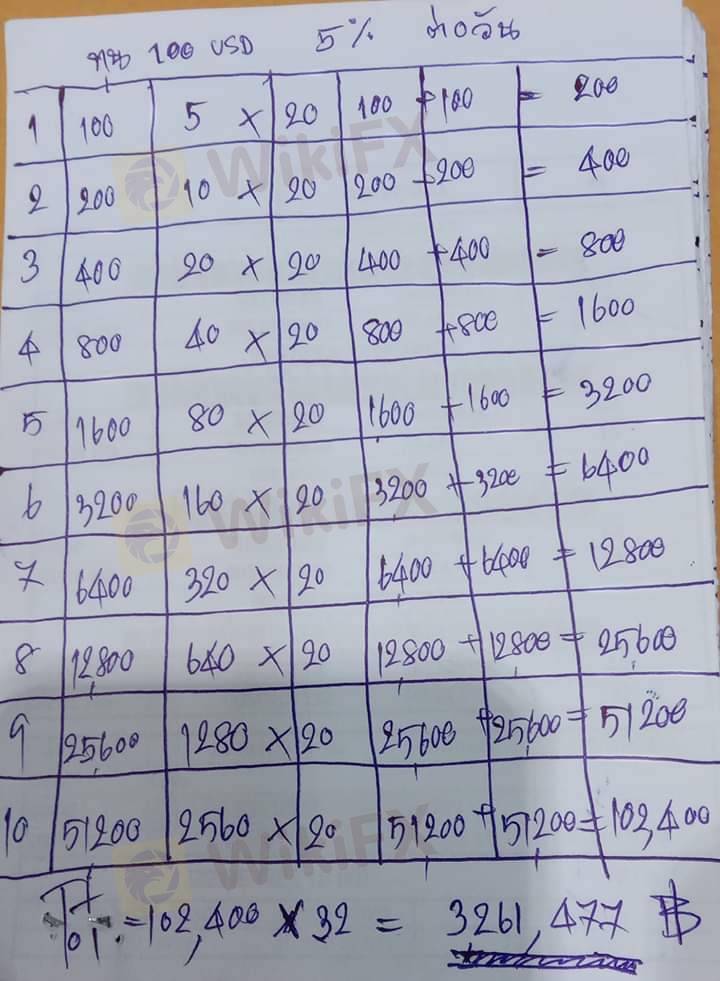 ทุน 100 USD 5% ต่อวัน
1 100 5 × 20 100 +100 = 200
2 200 10 × 20 200 +200 = 400
3 400 20 × 20 400 +400 = 800
4 800 40 × 20 800 +800 = 1600
5 1600 80 × 20 1600 +1600 = 3200
6 3200 160 × 20 3200 +3200 = 6400
7 6400 320 × 20 6400 +6400 = 12800
8 12800 640 × 20 12800 +12800 = 25600
9 25600 1280 × 20 25600 +25600 = 51200
10 51200 2560 × 20 51200 +51200 = 102,400
= 102,400 × 32 = 3261,477 ฿
WikiFX
WikiFX
WikiFX